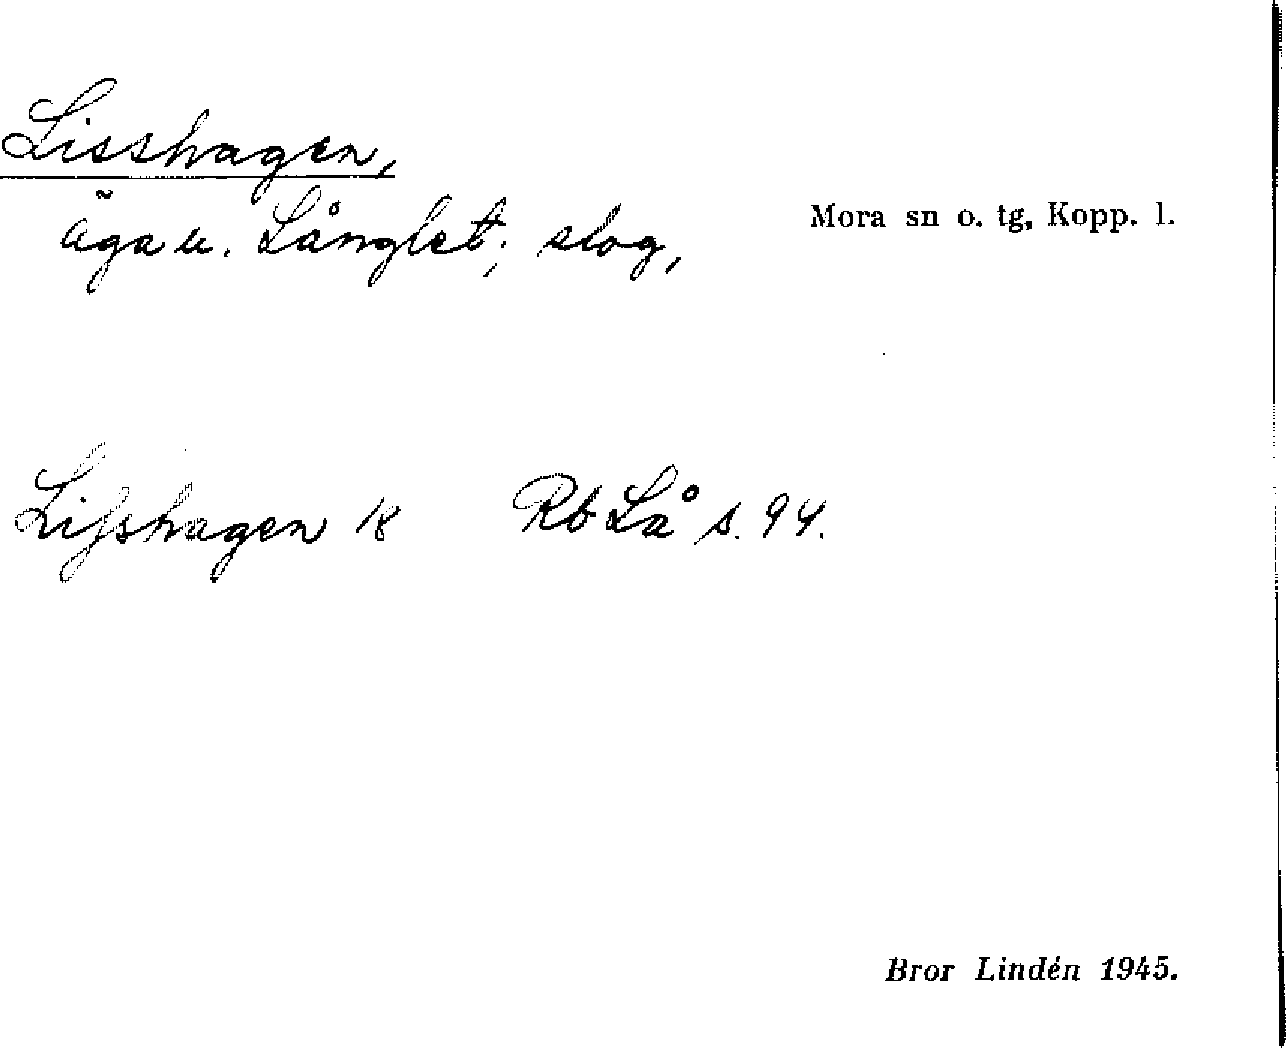 Lisshagen,
äga u. Långlet; slog,
Mora sn o. tg, Kopp. l.
Liſshagen 18 Rb Lå s. 94.
Bror Lindén 1945.